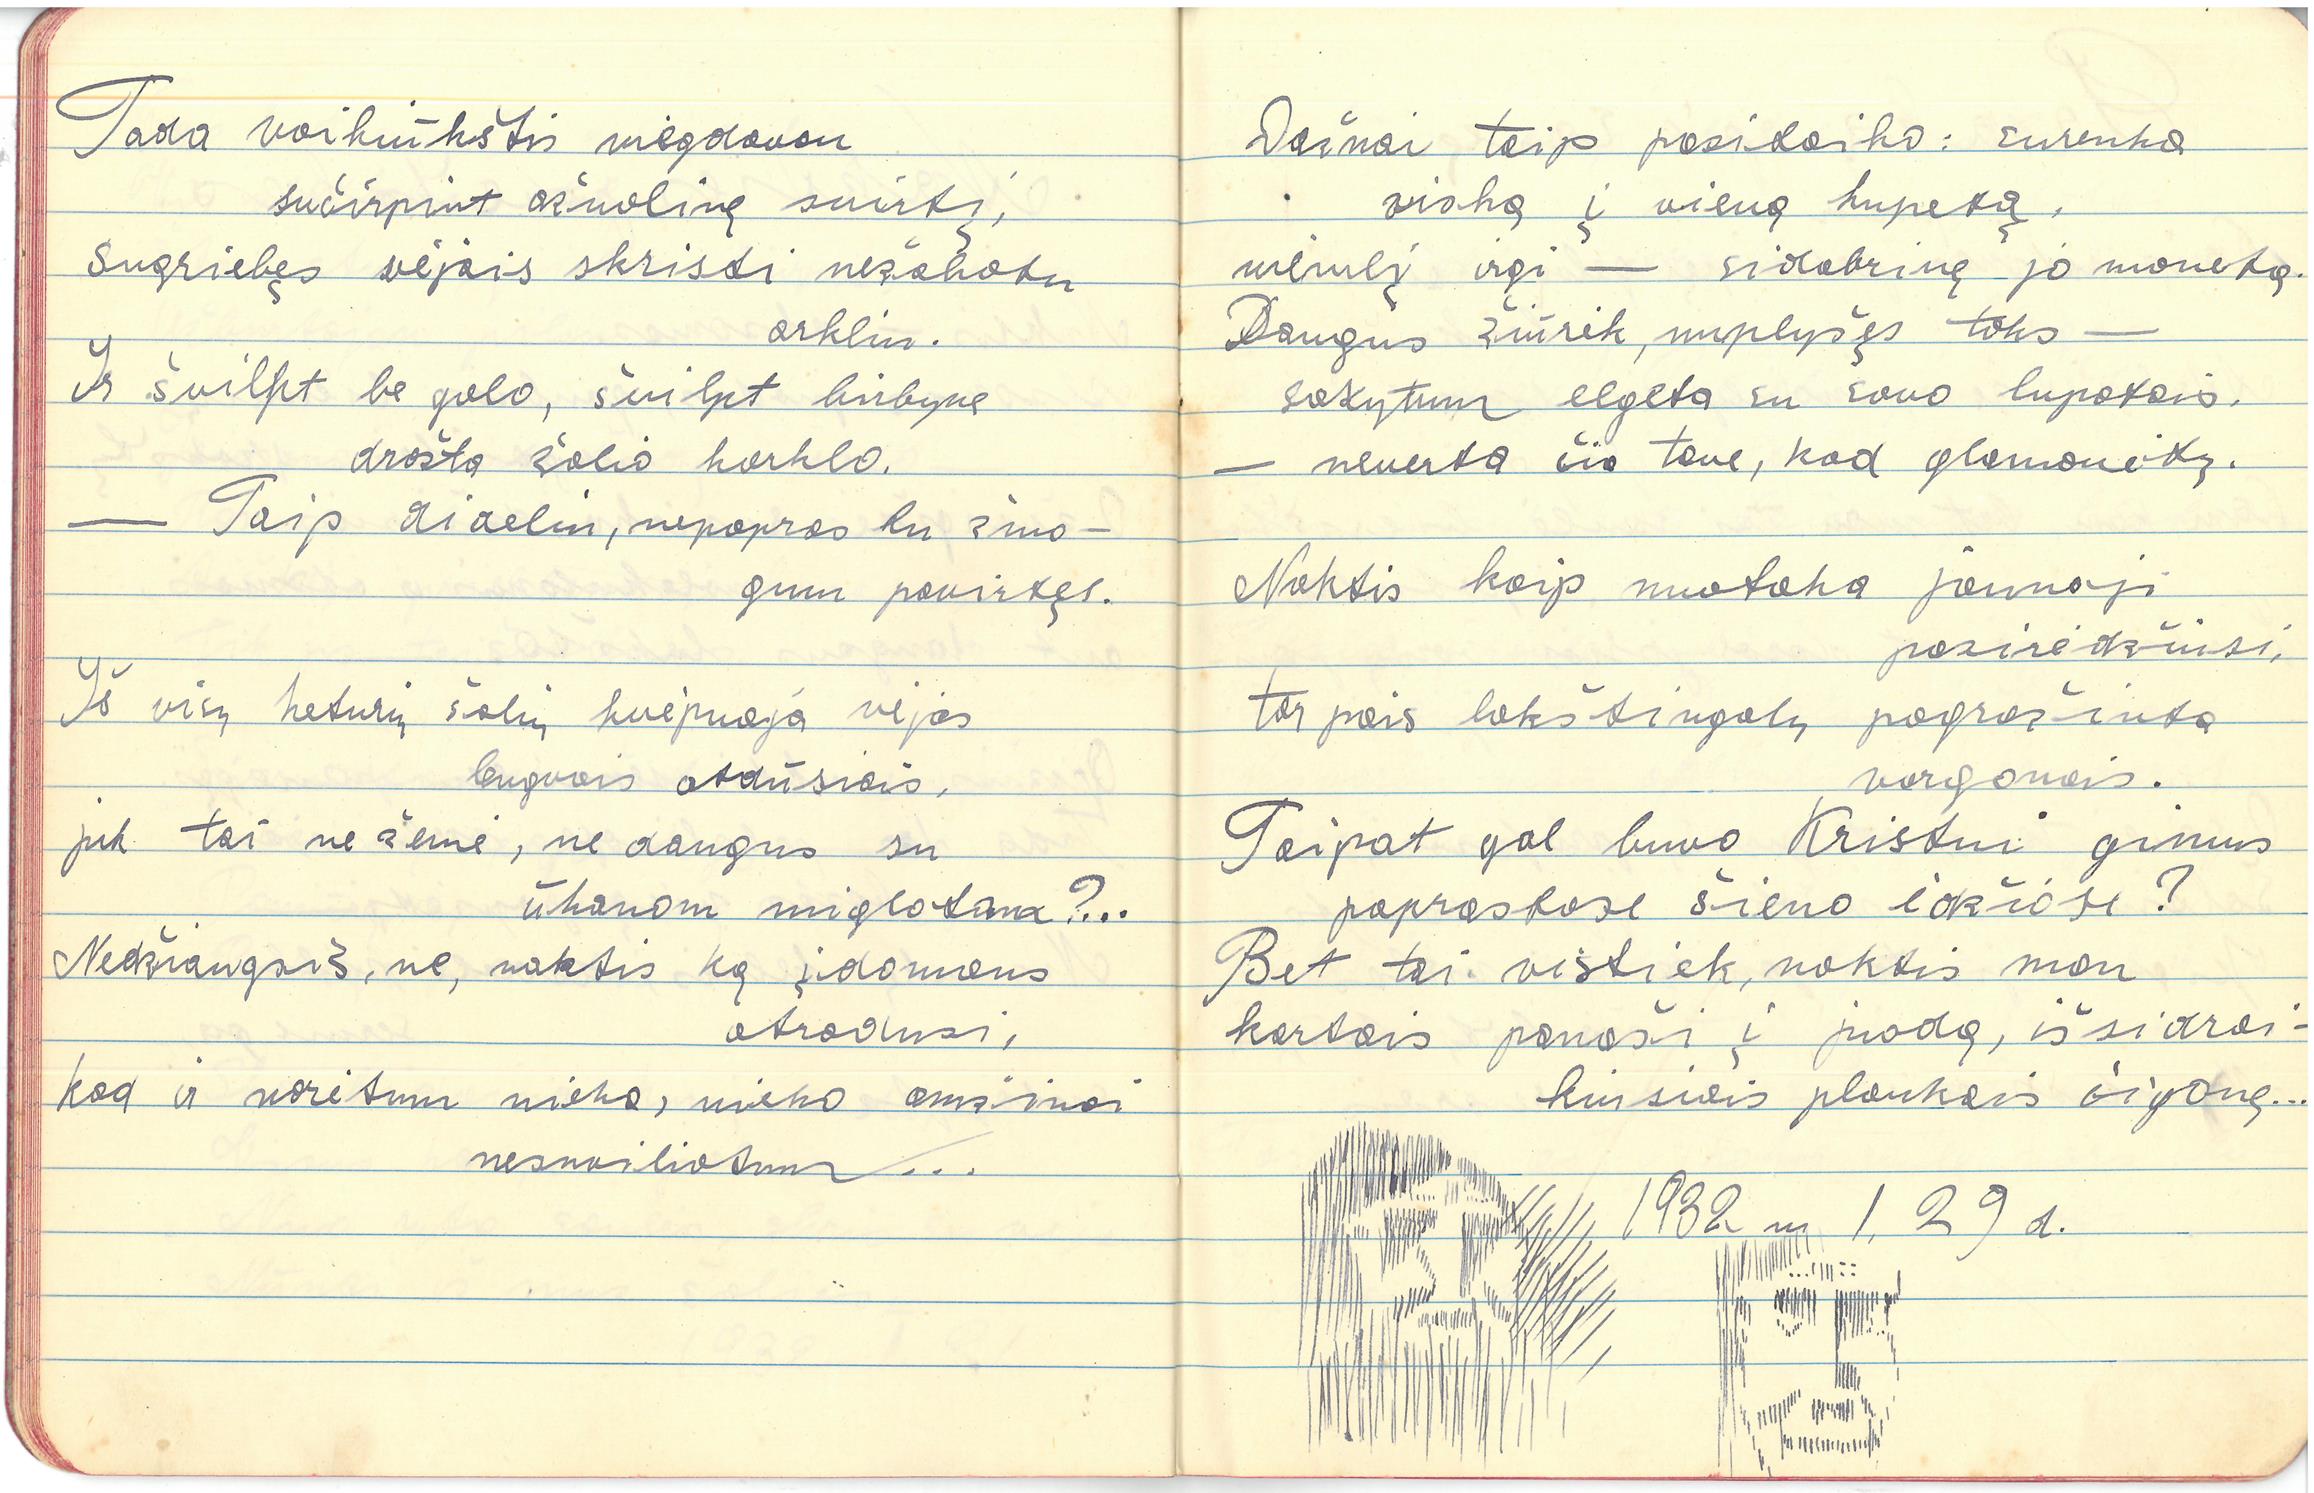 Tada vaikiūkštis mėgdavau
sučirpint ąžuolinę svirtį,
Sugriebęs vėjais skristi nežabotu
arkliu.
Ir švilpt be galo, švilpt birbyne
drožta žalio karklo.
— Taip dideliu, nepaprastu žmo-
gum pavirtęs.
Iš visų keturių šalių kvėpuoja vėjas
lengvais atdūsiais,
juk tai ne žemė, ne dangus su
ūkanom miglotam?...
Nedžiaugsiš, ne, naktis ką įdomaus
atradusi,
kad ir norėtum nieko, nieko amžinai
nesuviliotum ...
Dažnai taip pasitaiko: surenka
viską į vieną kupetą,
mėnulį irgi — sidabrinę jo monetą.
Dangus žiūrėk, nuplyšęs toks —
sakytum elgeta su savo lupatais.
— neverta čia tave, kad glamonėtų.
Naktis kaip nuotaka jaunoji
pasirėdžiusi,
tarpais lakštingalų pagražinta
vargonais.
Taipat gal buvo Kristui gimus
paprastose šieno ėdžiose?
Bet tai vistiek, naktis man
kartais panaši į juodą, išsidrai-
kiusiais plaukais čigonę...
1932 m 1, 29 d.